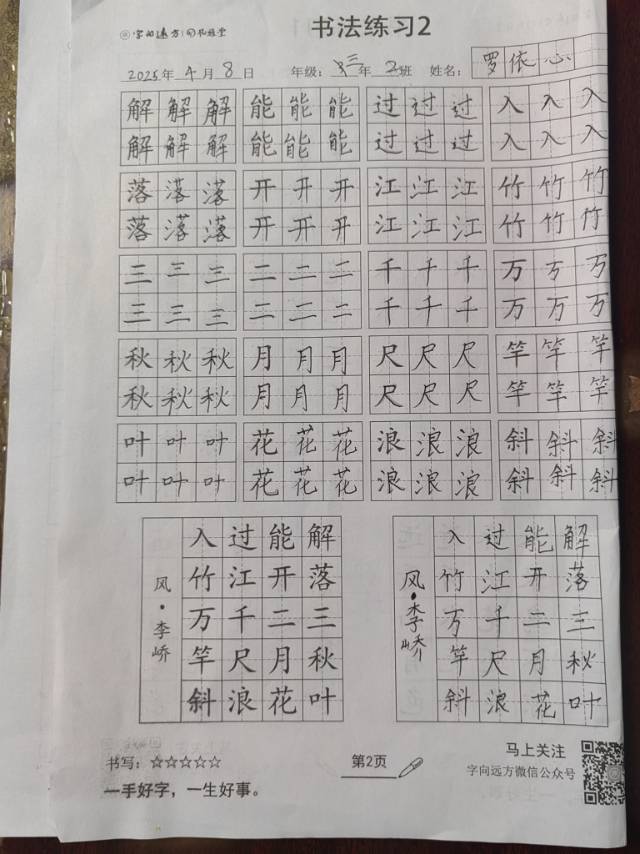 字向远方
书法练习2
2025年4月8日 年级:三年2班 姓名:罗依心
解解解 能能能 过过过 入入入
解解解 能能能 过过过 入入入
落落落 开开开 江江江 竹竹竹
落落落 开开开 江江江 竹竹竹
三三三 二二二 千千千 万万万
三三三 二二二 千千千 万万万
秋秋秋 月月月 尺尺尺 竿竿竿
秋秋秋 月月月 尺尺尺 竿竿竿
叶叶叶 花花花 浪浪浪 斜斜斜
叶叶叶 花花花 浪浪浪 斜斜斜
解落三秋叶
能开二月花
过江千尺浪
入竹万竿斜
风·李峤
解落三秋叶
能开二月花
过江千尺浪
入竹万竿斜
风·李峤
书写:☆☆☆☆☆
一手好字,一生好事。
第2页
马上关注
字向远方微信公众号